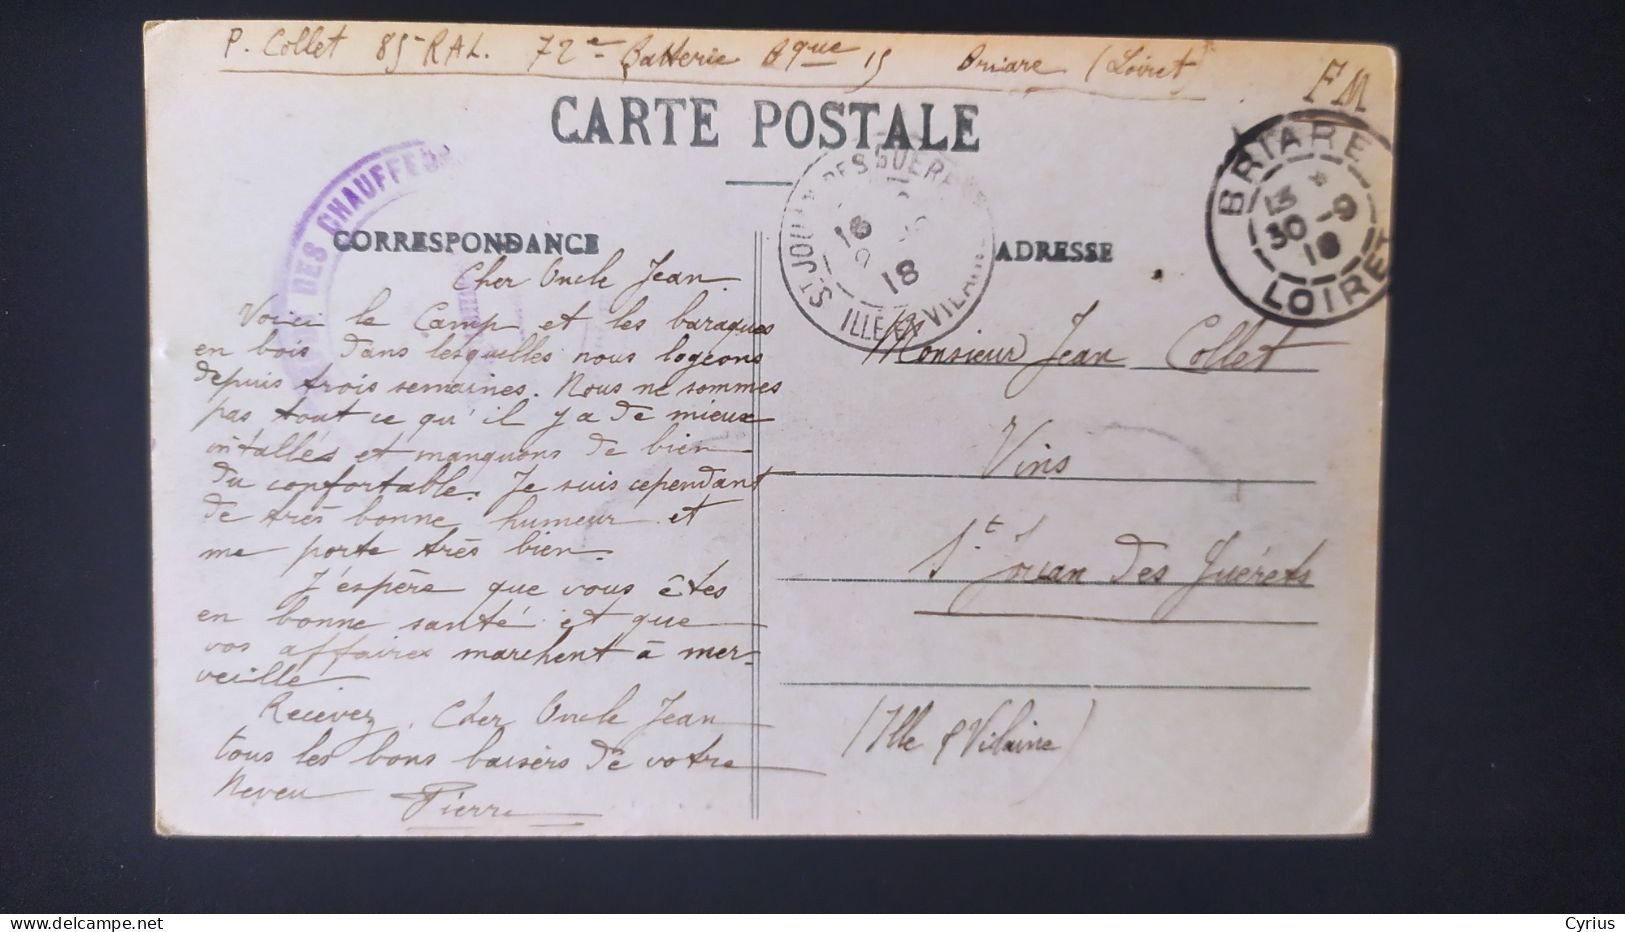 P. Collet 85 RAL. 72e Batterie Bque 15 Briare (Loiret)
FM
CARTE POSTALE
CORRESPONDANCE
ADRESSE
DES CHAUFFEU
ST JOUAN DES GUERETS
18
ILLE-ET-VILAINE
BRIARE
13
30 -9
18
LOIRET
Cher Oncle Jean.
Voici le Camp et les baraques
en bois dans lesquelles nous logeons
depuis trois semaines. Nous ne sommes
pas tout ce qu'il y a de mieux
intallés et manquons de bien
du confortable. Je suis cependant
de très bonne humeur et
me porte très bien.
J'espère que vous êtes
en bonne santé et que
vos affaires marchent à mer-
veille
Recevez, Cher Oncle Jean
tous les bons baisers de votre
Neveu Pierre
Monsieur Jean Collet
Vins
St Jouan des Guérets
(Ille & Vilaine)
Cyrius